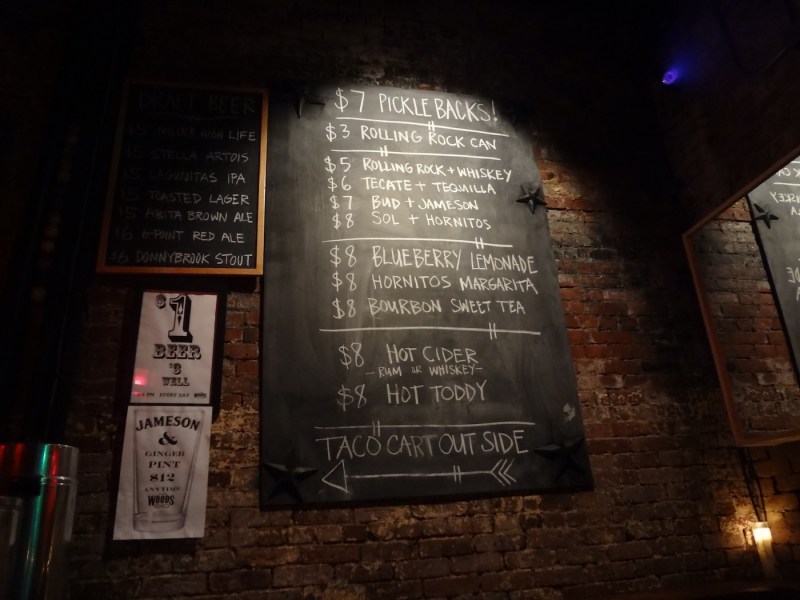 DRAFT BEER
$5 MILLER HIGH LIFE
$5 STELLA ARTOIS
LAGUNITAS IPA
TOASTED LAGER
$5 ABITA BROWN ALE
$6 6-POINT RED ALE
$6 DONNYBROOK STOUT
$7 PICKLEBACKS!
$3 ROLLING ROCK CAN
$5 ROLLING ROCK + WHISKEY
$6 TECATE + TEQUILLA
$7 BUD + JAMESON
$8 SOL + HORNITOS
$8 BLUEBERRY LEMONADE
$8 HORNITOS MARGARITA
$8 BOURBON SWEET TEA
$8 HOT CIDER
-RUM OR WHISKEY-
$8 HOT TODDY
TACO CART OUTSIDE
$1
BEER
$3
WELL
EVERY DAY
JAMESON
&
GINGER
PINT
$12
ANYTIME
WOODS